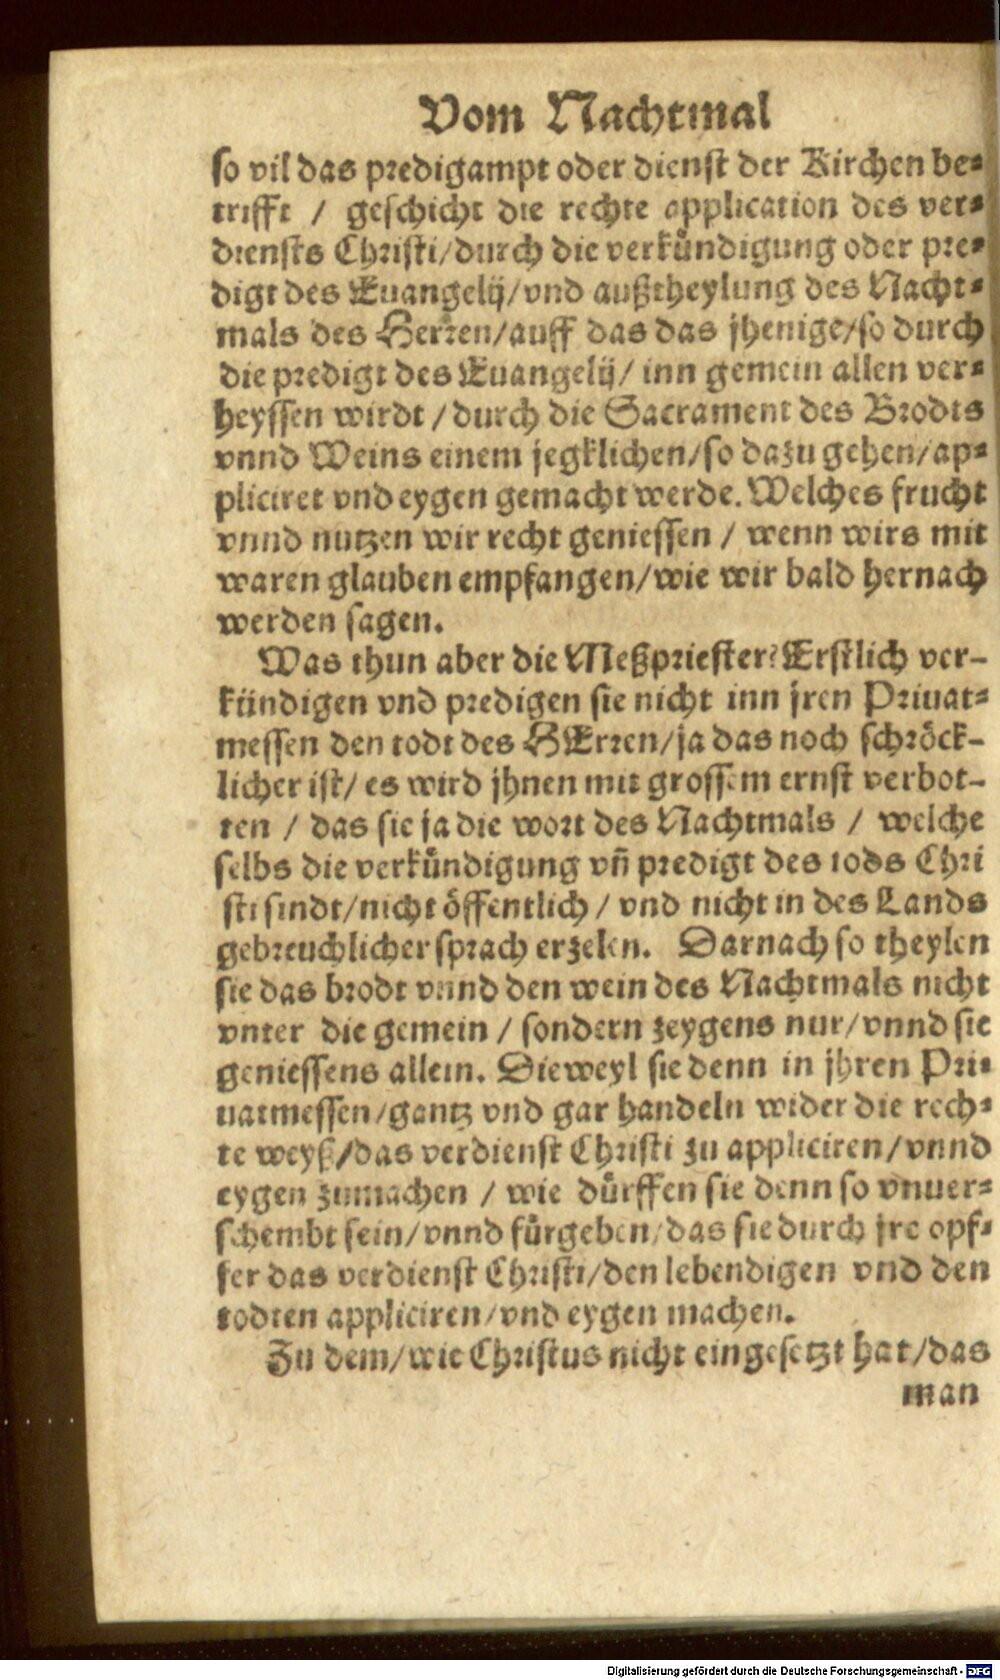 Vom Nachtmal
so vil das predigampt oder dienst der Kirchen be-
trifft / geschicht die rechte application des ver-
diensts Christi/durch die verkündigung oder pre-
digt des Euangelij/vnd außtheylung des Nacht-
mals des Herren/auff das das jhenige/so durch
die predigt des Euangelij/ inn gemein allen ver-
heyssen wirdt / durch die Sacrament des Brodts
vnnd Weins einem jegklichen/so dazu gehen/ap-
pliciret vnd eygen gemacht werde. Welches frucht
vnnd nutzen wir recht geniessen / wenn wirs mit
waren glauben empfangen/wie wir bald hernach
werden sagen.
Was thun aber die Meßpriester? Erstlich ver-
kündigen vnd predigen sie nicht inn jren Priuat-
messen den todt des HErren/ja das noch schröck-
licher ist/ es wird jhnen mit grossem ernst verbot-
ten / das sie ja die wort des Nachtmals / welche
selbs die verkündigung vn̄ predigt des tods Chri
sti sindt/nicht öffentlich / vnd nicht in des Lands
gebreuchlicher sprach erzelen. Darnach so theylen
sie das brodt vnnd den wein des Nachtmals nicht
vnter die gemein / sondern zeygens nur/vnnd sie
geniessens allein. Dieweyl sie denn in jhren Pri-
uatmessen/gantz vnd gar handeln wider die rech-
te weyß/das verdienst Christi zu appliciren/vnnd
eygen zumachen / wie dürffen sie denn so vnuer-
schembt sein/vnnd fürgeben/das sie durch jre opf-
fer das verdienst Christi/den lebendigen vnd den
todten appliciren/vnd eygen machen.
Zu dem/wie Christus nicht eingesetzt hat/das
man
Digitalisierung gefördert durch die Deutsche Forschungsgemeinschaft - DFG